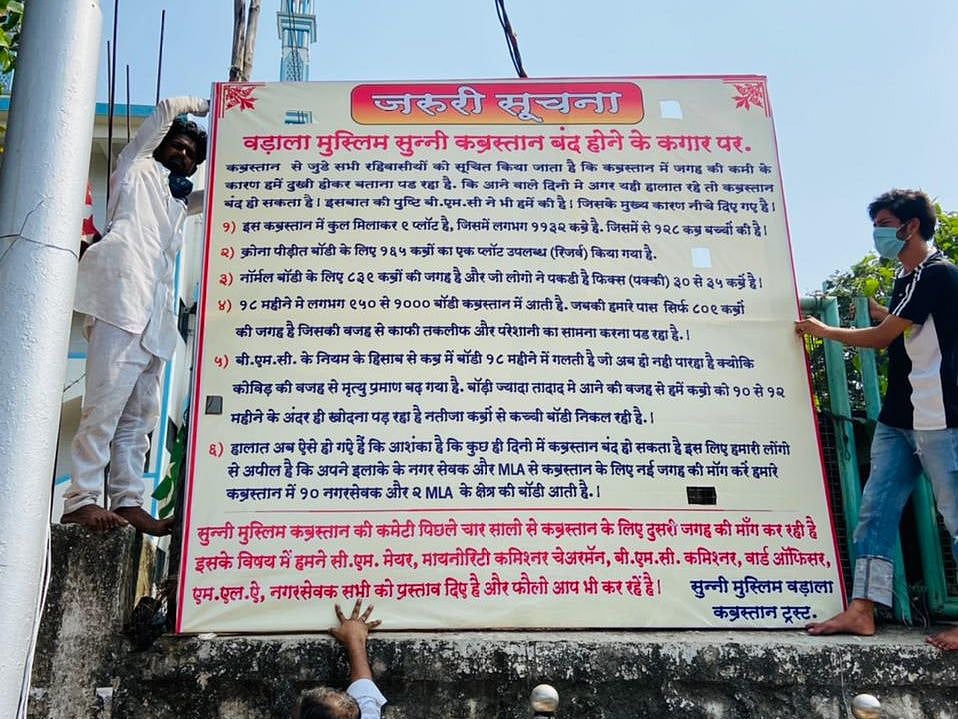 जरुरी सूचना
वड़ाला मुस्लिम सुन्नी कब्रस्तान बंद होने के कगार पर.
कब्रस्तान से जुडे सभी रहिवासीयों को सूचित किया जाता है कि कब्रस्तान में जगह की कमी के
कारण हमें दुखी होकर बताना पड रहा है. कि आने वाले दिनो मे अगर यही हालात रहे तो कब्रस्तान
बंद हो सकता है। इसबात की पुष्टि बी.एम.सी ने भी हमें की है। जिसके मुख्य कारण नीचे दिए गए है।
१) इस कब्रस्तान में कुल मिलाकर ९ प्लॉट है, जिसमें लगभग ११३२ कब्रे है. जिसमें से १२८ कब्र बच्चों की है।
२) क्रोना पीड़ीत बॉडी के लिए १६५ कब्रों का एक प्लॉट उपलब्ध (रिजर्व) किया गया है.
३) नॉर्मल बॉडी के लिए ८३९ कब्रों की जगह है और जो लोगो ने पकडी है फिक्स (पक्की) ३० से ३५ कब्रे है।
४) १८ महीने मे लगभग ९५० से १००० बॉडी कब्रस्तान में आती है. जबकी हमारे पास सिर्फ ८०९ कब्रों
की जगह है जिसकी वजह से काफी तकलीफ और परेशानी का सामना करना पड रहा है.।
५) बी.एम.सी. के नियम के हिसाब से कब्र में बॉडी १८ महीने में गलती है जो अब हो नही पारहा है क्योकि
कोविड़ की वजह से मृत्यु प्रमाण बढ़ गया है. बॉड़ी ज्यादा तादाद मे आने की वजह से हमें कब्रो को १० से १२
महीने के अंदर ही खोदना पड़ रहा है नतीजा कब्रों से कच्ची बॉडी निकल रही है.।
६) हालात अब ऐसे हो गए हैं कि आशंका है कि कुछ ही दिनो में कब्रस्तान बंद हो सकता है इस लिए हमारी लोंगो
से अपील है कि अपने इलाके के नगर सेवक और MLA से कब्रस्तान के लिए नई जगह की माँग करें हमारे
कब्रस्तान में १० नगरसेवक और २ MLA के क्षेत्र की बॉडी आती है.।
सुन्नी मुस्लिम कब्रस्तान की कमेटी पिछले चार सालो से कब्रस्तान के लिए दुसरी जगह की माँग कर रही है
इसके विषय में हमने सी.एम. मेयर, मायनोरिटी कमिश्नर चेअरमॅन, बी.एम.सी. कमिश्नर, वार्ड ऑफिसर,
एम.एल.ऐ, नगरसेवक सभी को प्रस्ताव दिए है और फौलो आप भी कर रहें है।
सुन्नी मुस्लिम वड़ाला
कब्रस्तान ट्रस्ट.